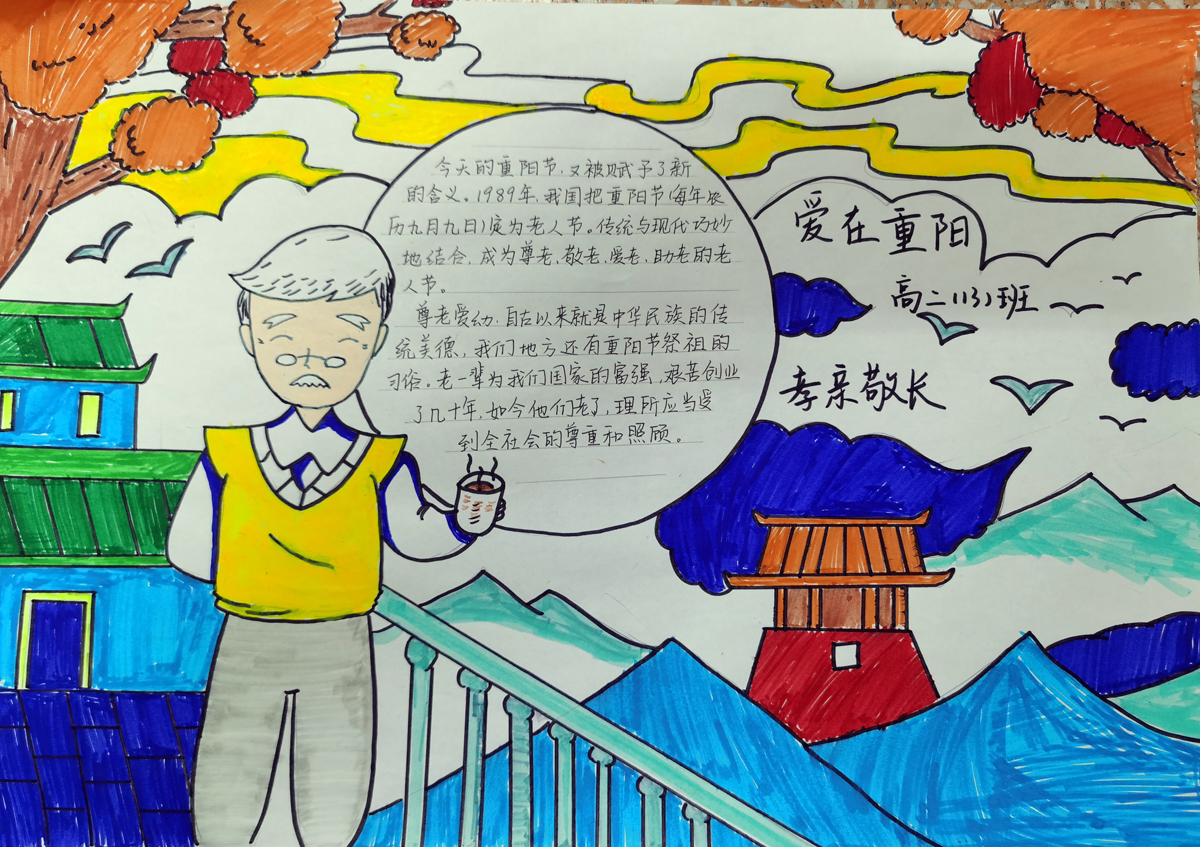 今天的重阳节,又被赋予了新
的含义。1989年,我国把重阳节(每年农
历九月九日)定为老人节。传统与现代巧妙
地结合,成为尊老、敬老、爱老、助老的老
人节。
尊老爱幼,自古以来就是中华民族的传
统美德,我们地方还有重阳节祭祖的
习俗。老一辈为我们国家的富强,艰苦创业
了几十年,如今他们老了,理所应当受
到全社会的尊重和照顾。
爱在重阳
高二(13)班
孝亲敬长